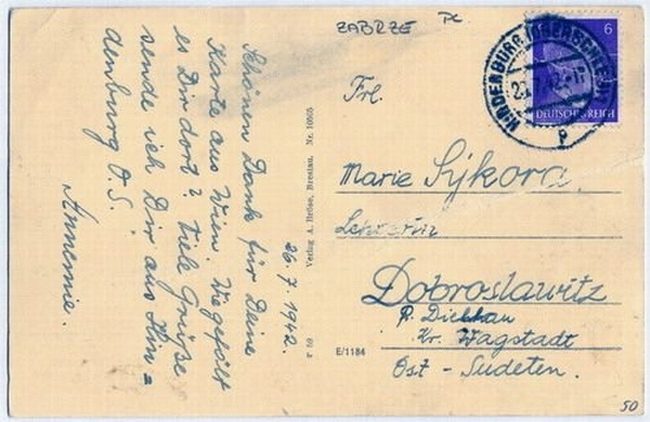 ZABRZE
6
DEUTSCHES REICH
HINDENBURG (OBERSCHLES)
P
26.7.1942.
Schönen Dank für Deine
Karte aus Wien. Wie gefällt
es Dir dort? Viele Grüße
sende ich Dir aus Hin=
denburg O.S.
Annemie.
Verlag A. Bröse, Breslau. Nr. 10505
F 59
E/1184
Frl.
Marie Sýkora.
Lehrerin
Dobroslawitz
P. Dielhau
Kr. Wagstadt
Ost - Sudeten.
50